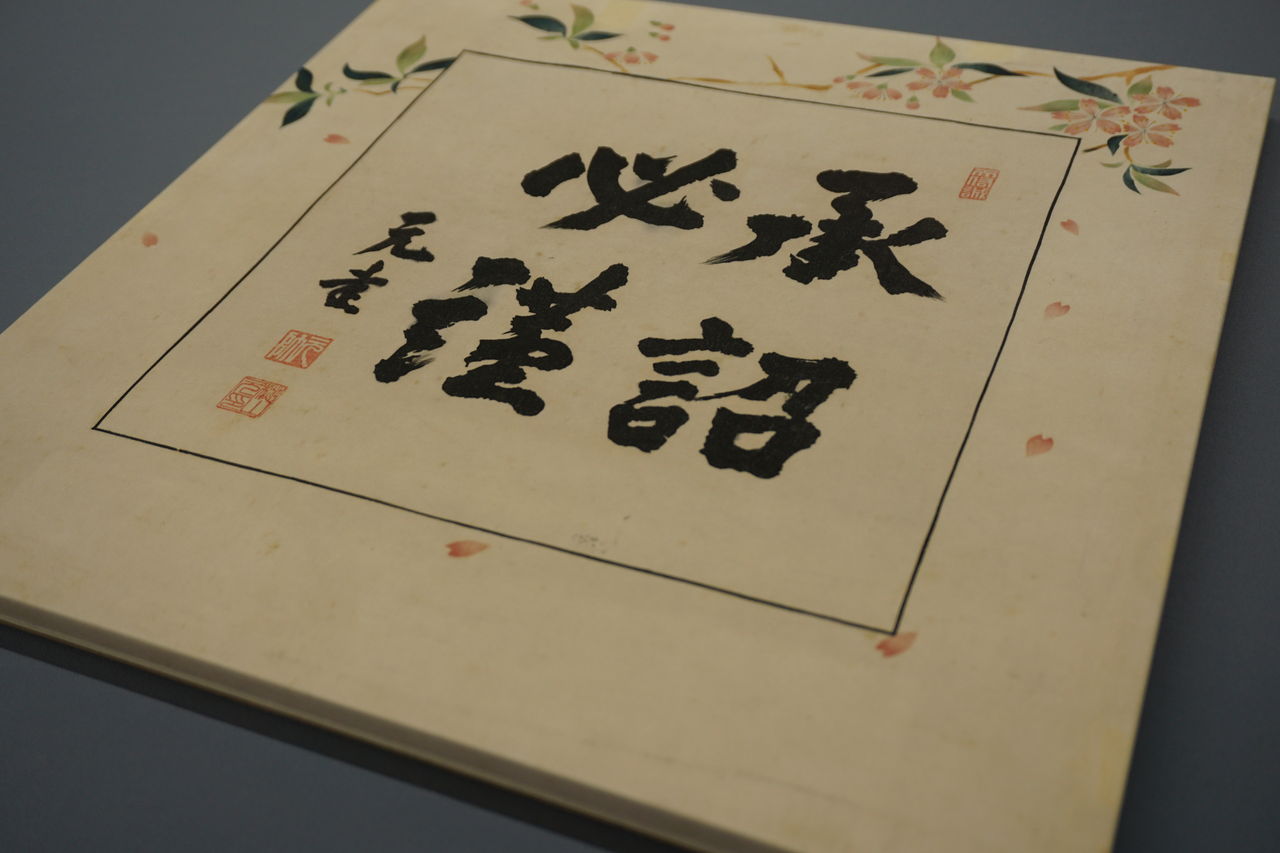 承詔
必謹
元書